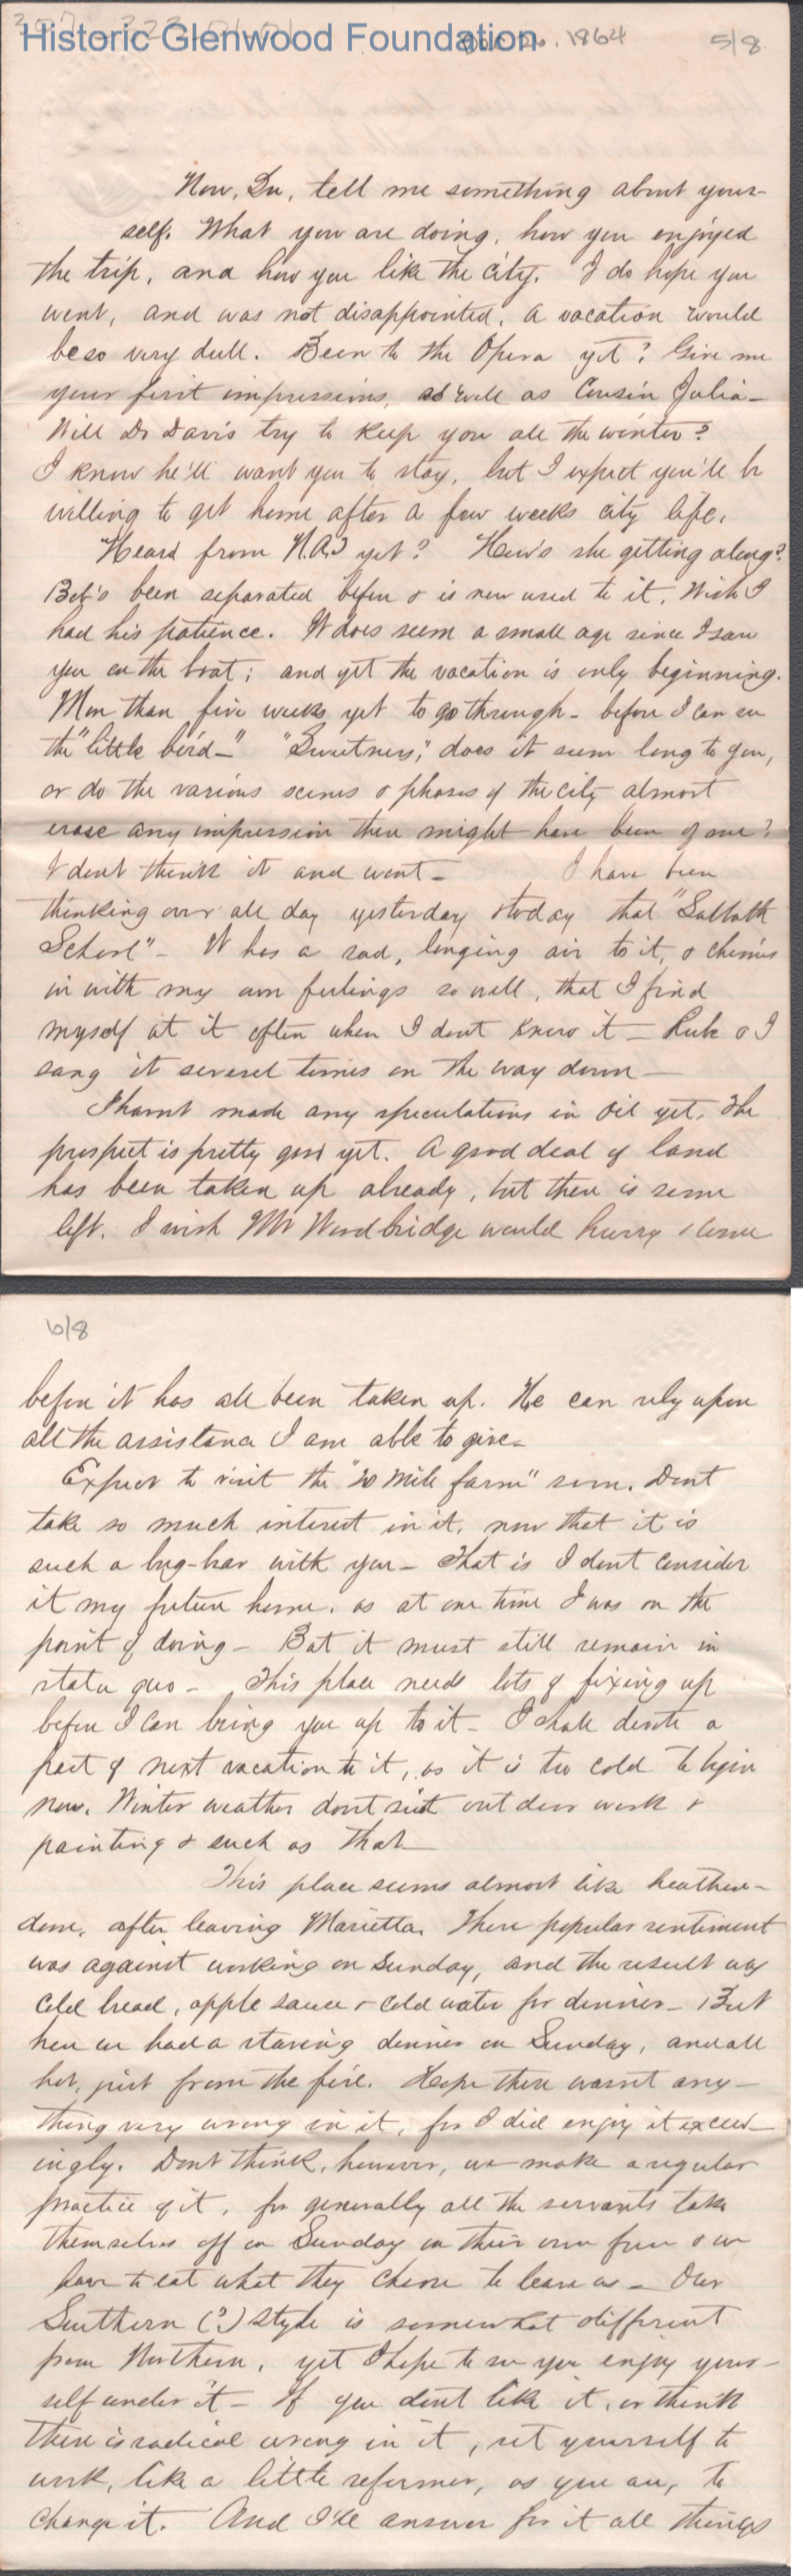 Historic Glenwood Foundation
1864
5/8
Now, Du, tell me something about your-
self. What you are doing, how you enjoyed
the trip, and how you like the city. I do hope you
went, and was not disappointed. A vacation would
be so very dull. Been to the Opera yet? Give me
your first impressions, as well as Cousin Julia-
Will Dr Davis try to keep you all the winter?
I know he'll want you to stay, but I expect you'll be
willing to get home after a few weeks city life.
Heard from N.A.J yet? How's she getting along?
Bob's been separated before & is now used to it. Wish I
had his patience. It does seem a small age since I saw
you on the boat; and yet the vacation is only beginning.
More than five weeks yet to go through - before I can see
the "little bird-" "Sweetness," does it seem long to you,
or do the various scenes & phases of the city almost
erase any impression there might have been of me?
I dont think it and wont- I have been
thinking over all day yesterday & today that "Sabbath
School"- It has a sad, longing air to it, & chimes
in with my own feelings so well, that I find
myself at it often when I dont know it - Rube & I
sang it several times on the way down-
I havnt made any speculations in Oil yet. The
prospect is pretty good yet. A good deal of land
has been taken up already, but there is some
left. I wish Mr Woodbridge would hurry & come
6/8
before it has all been taken up. He can rely upon
all the assistance I am able to give-
Expect to visit the "20 mile farm" soon. Dont
take so much interest in it, now that it is
such a bug-bar with you- That is I dont consider
it my future home, as at one time I was on the
point of doing- But it must still remain in
statu quo- This place needs lots of fixing up
before I can bring you up to it- I shall devote a
part of next vacation to it, as it is too cold to begin
now. Winter weather dont suit out door work &
painting & such as that-
This place seems almost like heathen-
dom, after leaving Marietta. There popular sentiment
was against working on Sunday, and the result was
cold bread, apple sauce & cold water for dinner- But
here we had a staving dinner on Sunday, and all
hot, just from the fire. Hope there wasnt any-
thing very wrong in it, for I did enjoy it exceed-
ingly. Dont think, however, we make a regular
practice of it, for generally all the servants take
themselves off on Sunday on their own free & we
have to eat what they choose to leave us- Our
Southern (?) style is somewhat different
from Northern, yet I hope to see you enjoy your-
self under it- If you dont like it, or think
there is radical wrong in it, set yourself to
work, like a little reformer, as you are, to
change it. And I'll answer for it all things